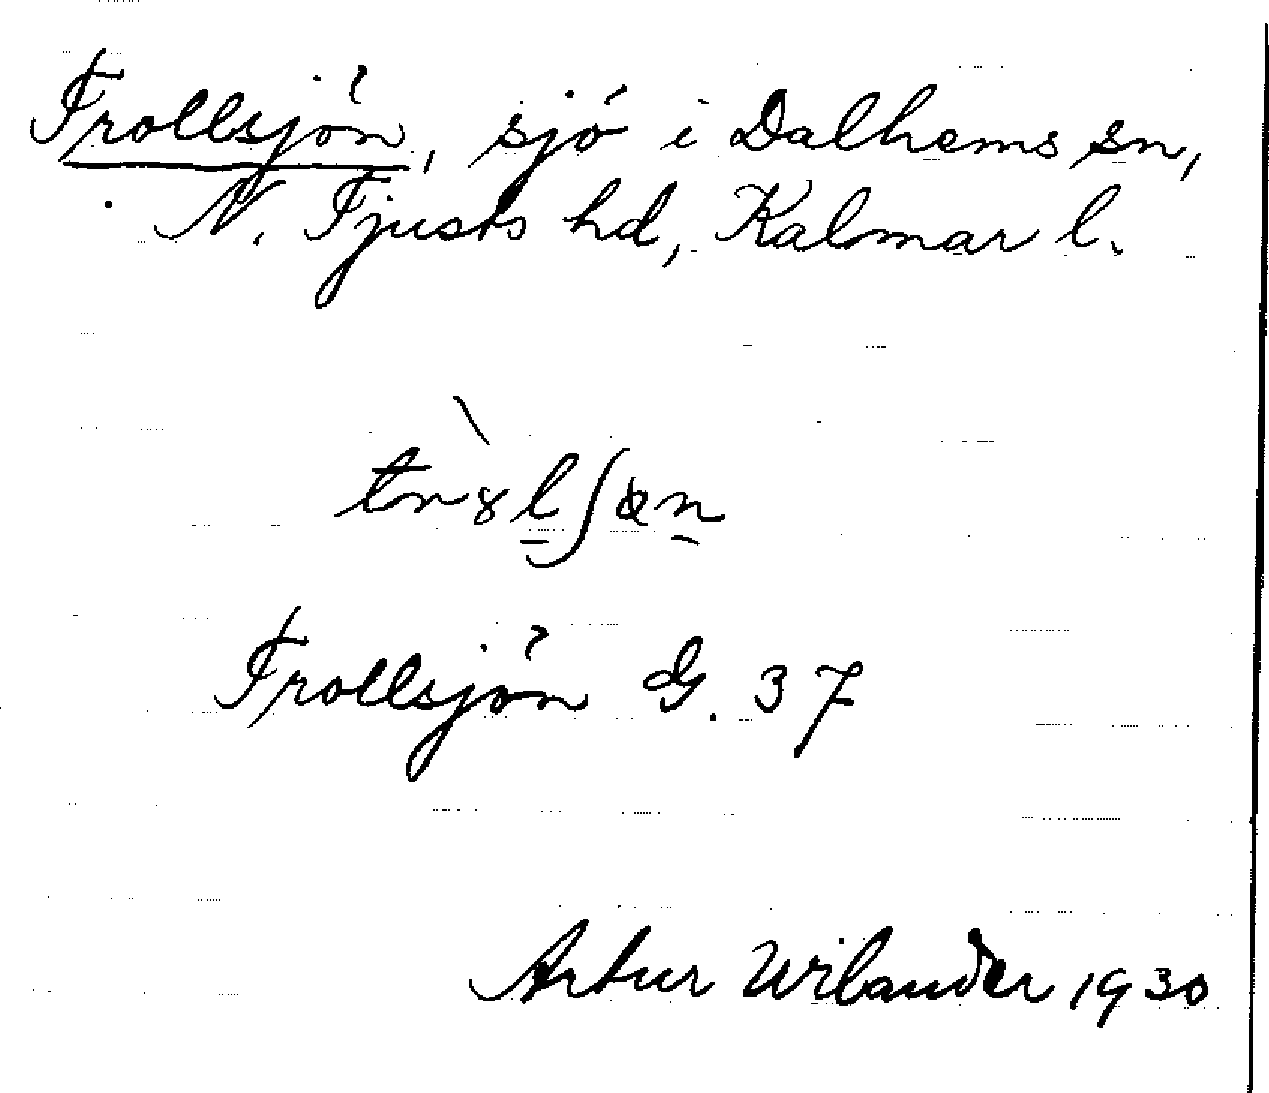 Trollsjön, sjö i Dalhems sn,
N. Tjusts hd, Kalmar l.
Trollsjön G. 37
Artur Wilander 1930